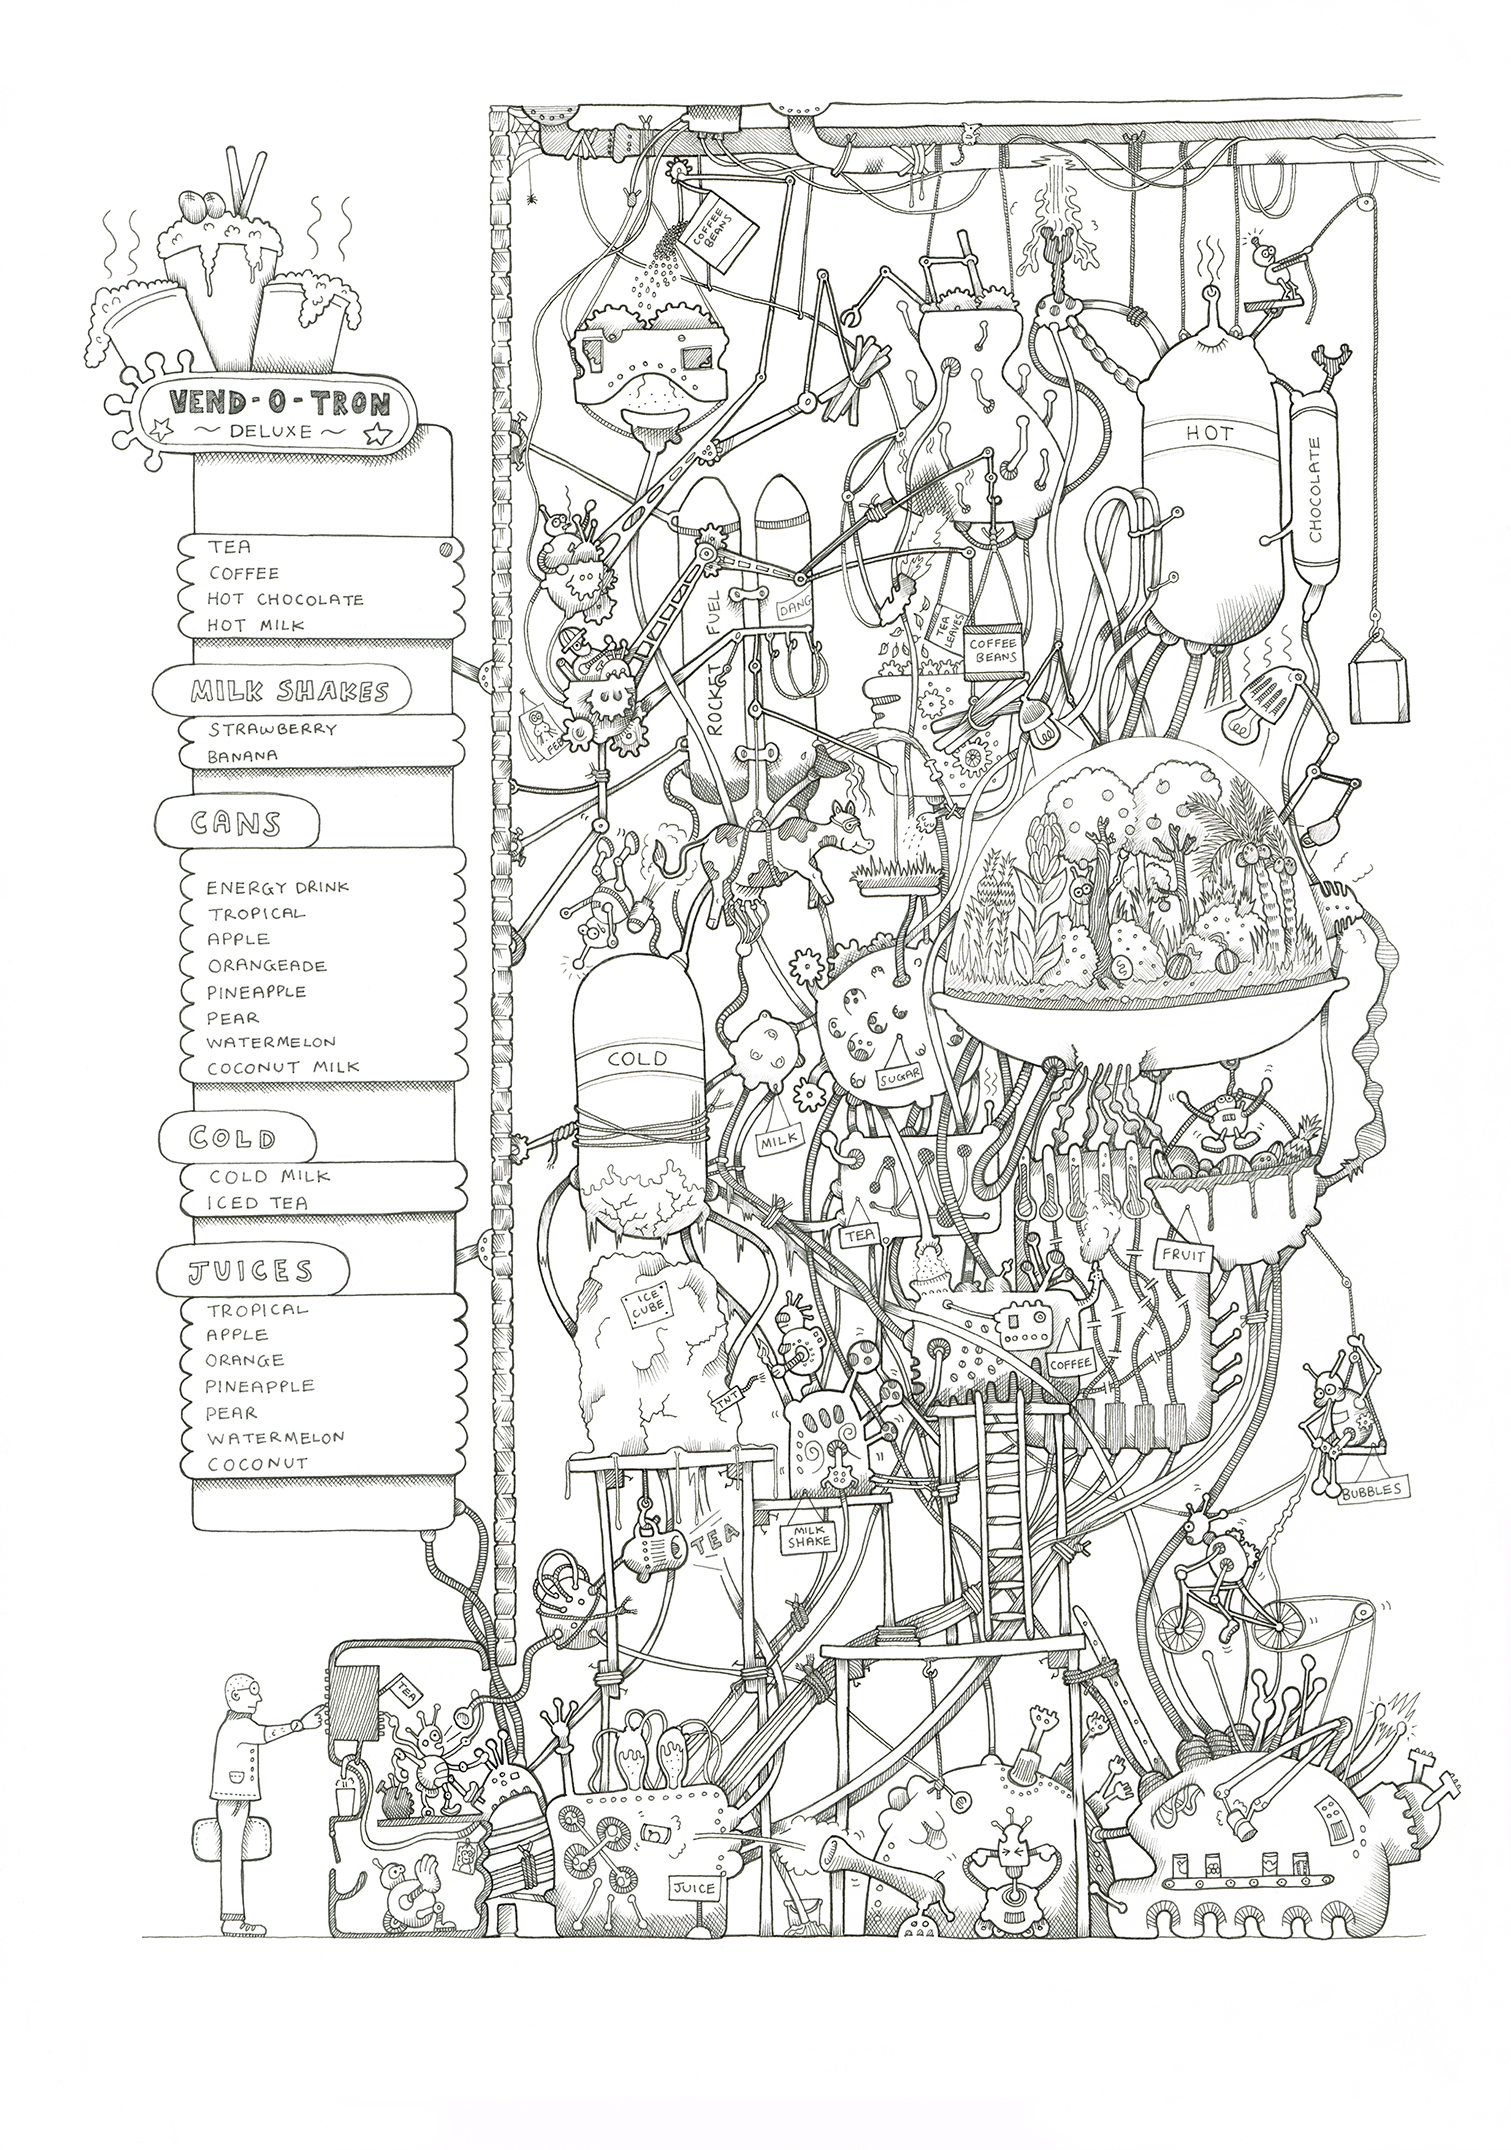 VEND-O-TRON
~ DELUXE ~
TEA
COFFEE
HOT CHOCOLATE
HOT MILK
MILK SHAKES
STRAWBERRY
BANANA
CANS
ENERGY DRINK
TROPICAL
APPLE
ORANGEADE
PINEAPPLE
PEAR
WATERMELON
COCONUT MILK
COLD
COLD MILK
ICED TEA
JUICES
TROPICAL
APPLE
ORANGE
PINEAPPLE
PEAR
WATERMELON
COCONUT
COFFEE
BEANS
HOT
CHOCOLATE
ROCKET FUEL
DANG
TEA
LEAVES
COFFEE
BEANS
FEB
COLD
SUGAR
MILK
TEA
FRUIT
ICE
CUBE
COFFEE
TNT
BUBBLES
MILK
SHAKE
TEA
TEA
JUICE